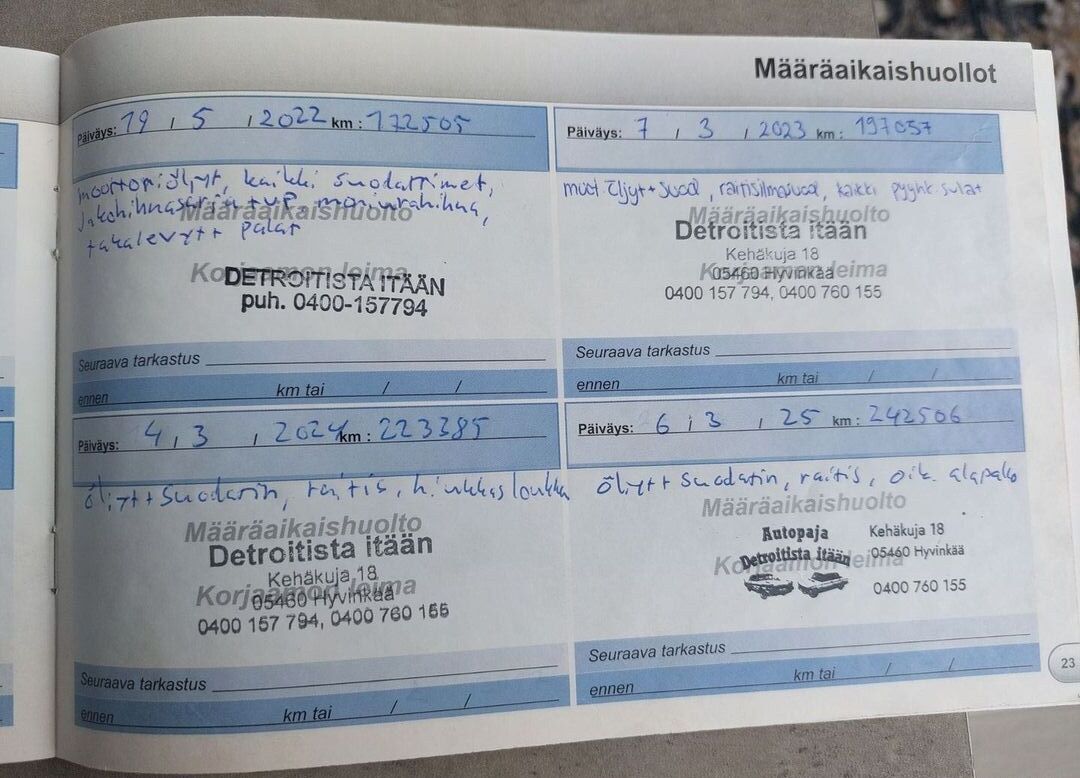 Määräaikaishuollot
Päiväys: 19 / 5 / 2022 km : 172505
moottoriöljyt, kaikki suodattimet,
jakohihnasarja + vp, moniurahihna,
takalevyt + palat
Määräaikaishuolto
Korjaamon leima
DETROITISTA ITÄÄN
puh. 0400-157794
Seuraava tarkastus
ennen km tai / /
Päiväys: 7 / 3 / 2023 km : 197057
moot öljyt + suod, raitisilmasuod, kaikki pyyhk sulat
Määräaikaishuolto
Detroitista itään
Kehäkuja 18
Korjaamon leima
05460 Hyvinkää
0400 157 794, 0400 760 155
Seuraava tarkastus
ennen km tai / /
Päiväys: 4 / 3 / 2024 km : 223385
öljyt + suodatin, raitis, hiukkasloukku
Määräaikaishuolto
Detroitista itään
Kehäkuja 18
Korjaamon leima
05460 Hyvinkää
0400 157 794, 0400 760 155
Seuraava tarkastus
ennen km tai / /
Päiväys: 6 / 3 / 25 km : 242506
öljyt + suodatin, raitis, oik. alapallo
Määräaikaishuolto
Autopaja Kehäkuja 18
Detroitista itään 05460 Hyvinkää
Korjaamon leima
0400 760 155
Seuraava tarkastus
ennen km tai / /
23